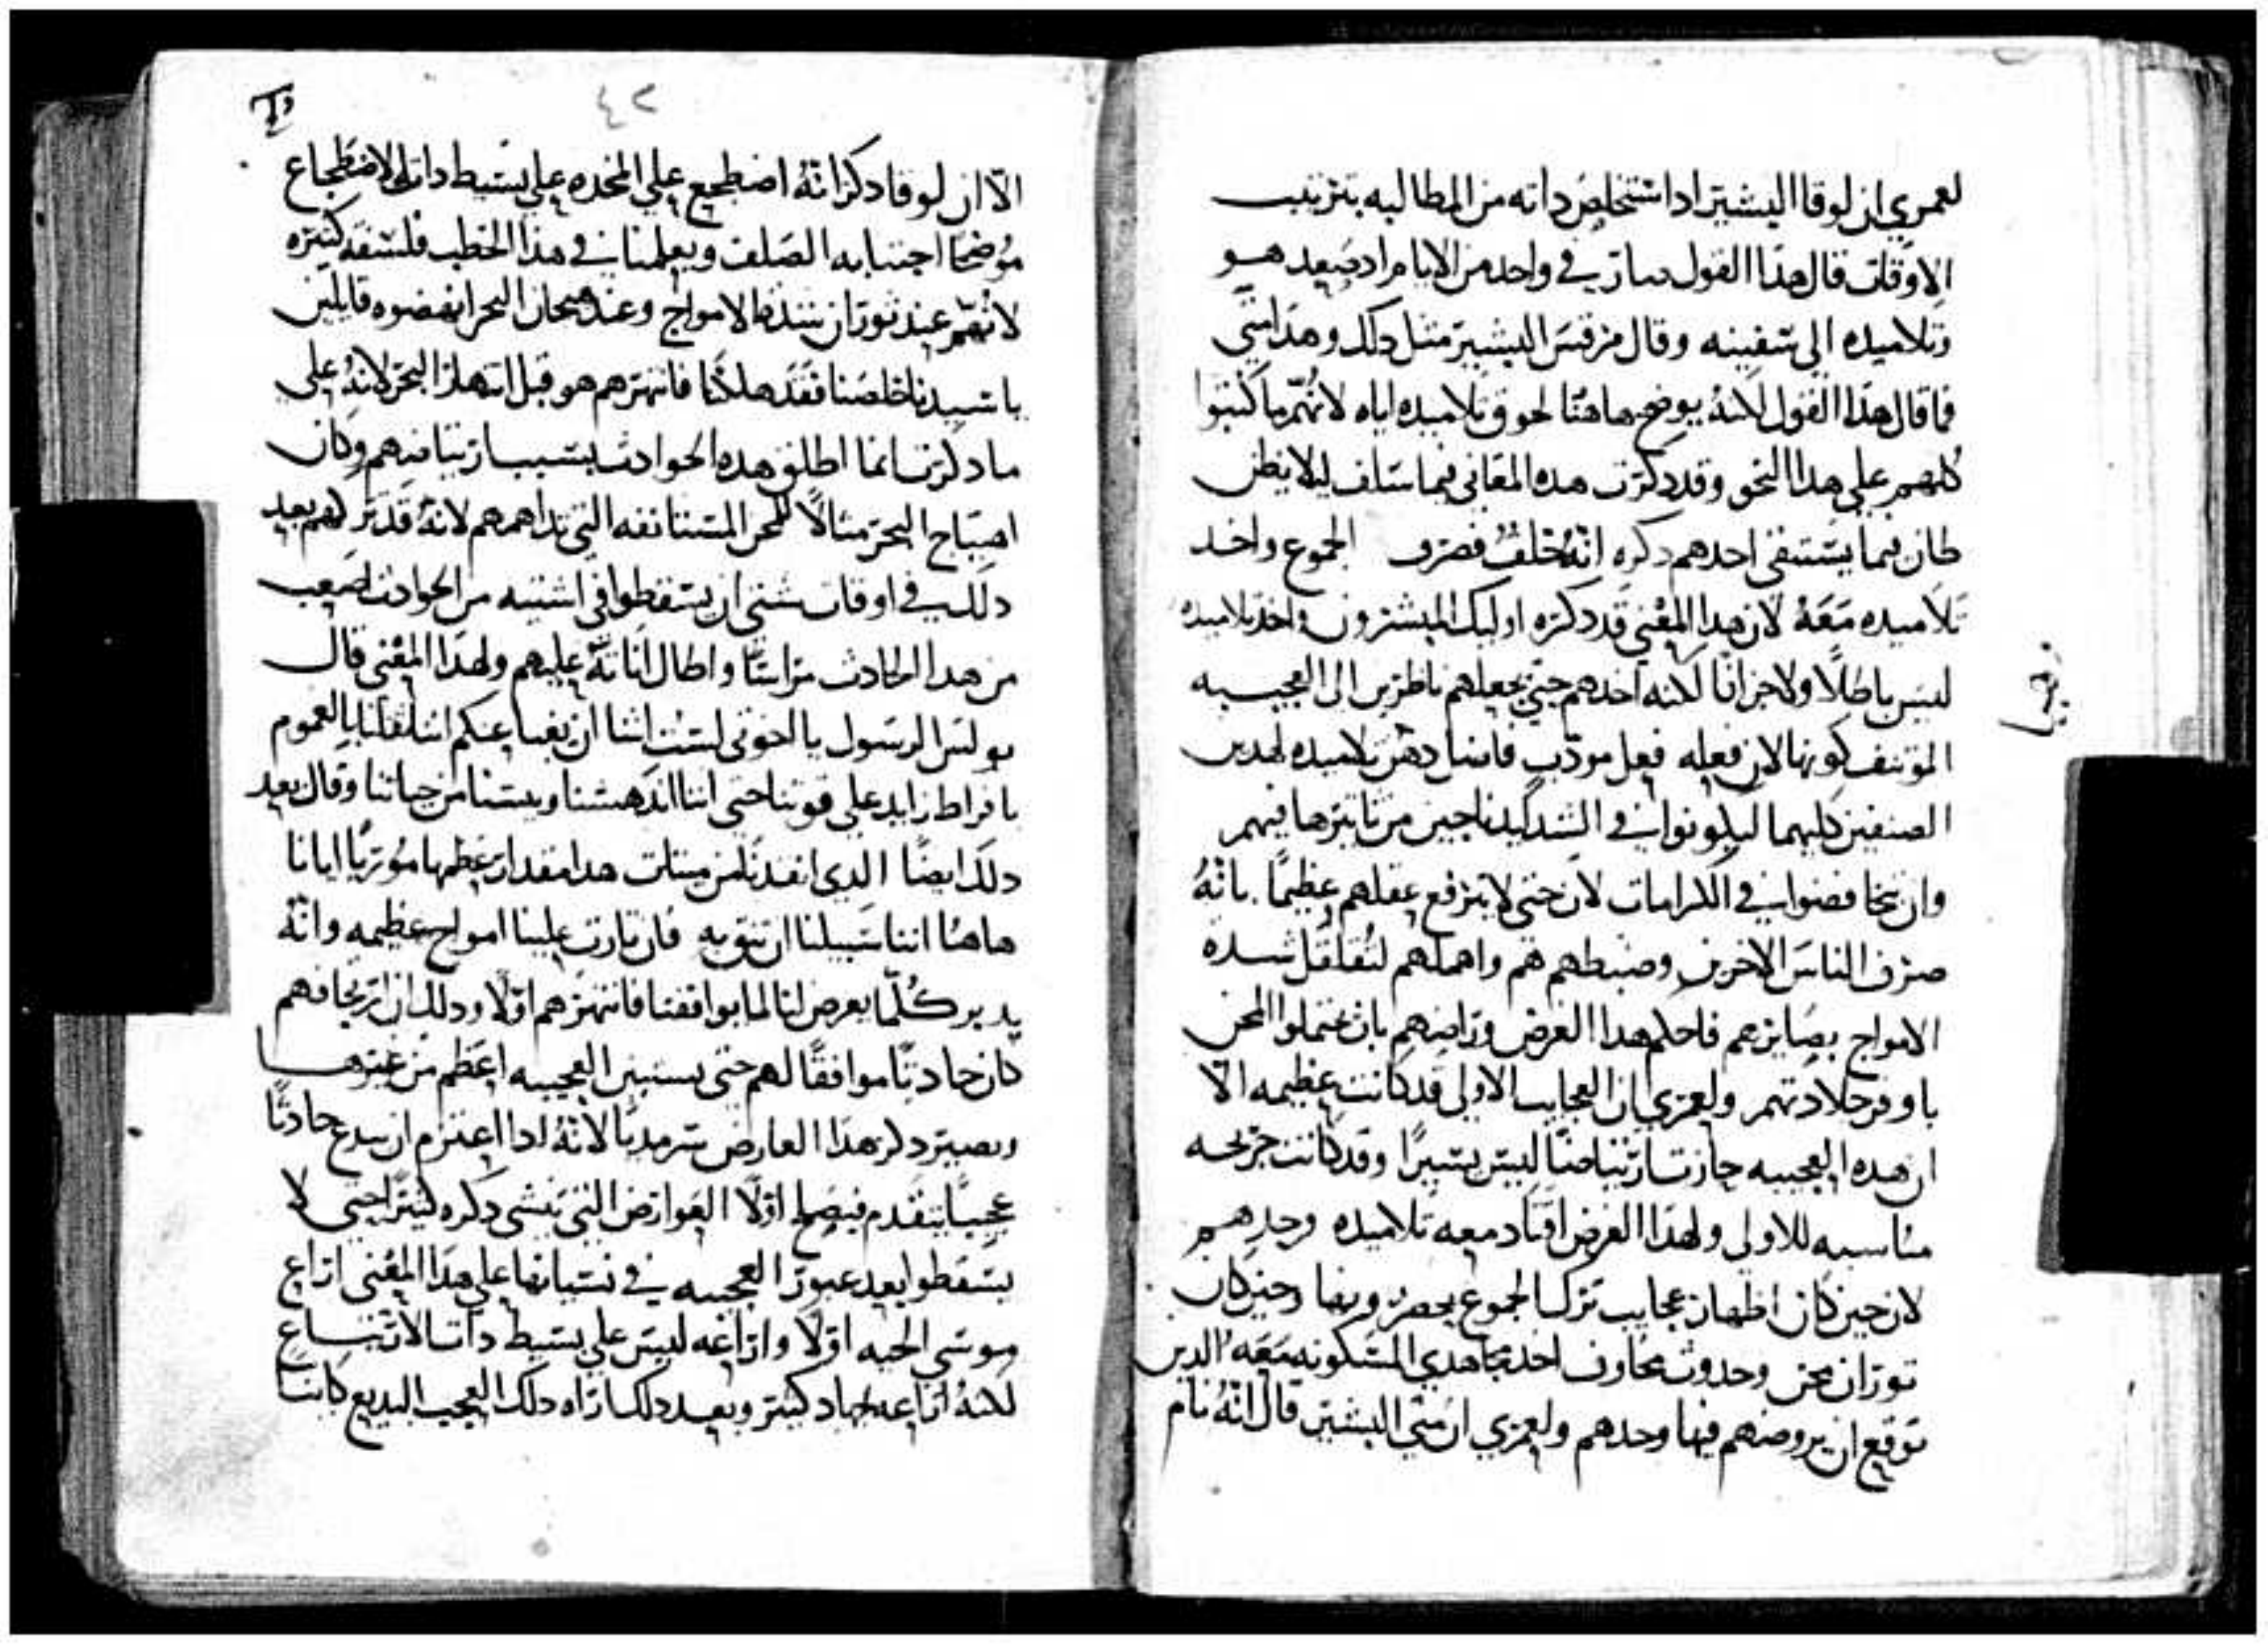 لعمري ان لوقا البشير اد استخلص داته من المطالبه بترتيب
الاوقات قال هدا القول صار في واحد من الايام اد صعد هو
وتلاميده الي سفينه وقال مرقس البشير مثل دلك وهدا متي
فما قال هدا القول لانه يوضح هاهنا لحوق تلاميده اياه لانهم ما كتبوا
كلهم علي هدا النحو وقد دكرت هده المعاني فيما سلف ليلا يظن
ظان فيما يستثني احدهم دكره انه خلف فصرف الجموع واخد
تلاميده معه لان هدا المعني قد دكره اوليك المبشرون واخد تلاميده
ليس باطلا ولا جزافا لكنه اخدهم حتي يجعلهم ناظرين الى العجيبه
المؤتنف كونها لان فعله فعل مودب فانما دهن تلاميده لهدين
الصنفين كليهما ليكونوا في الشدايد ناجين من تاثيرها فيهم
وان يخافضوا في الكرامات لان حتى لا يرفع عقلهم عظيما بانه
صرف الناس الاخرين وضبطهم هم واهملهم لتقلقل شده
الامواج بصايرهم فاحكم هدا الغرض وراضهم بان يحتملوا المحن
باوفر جلادتهم ولعمري ان العجايب الاولي قد كانت عظيمه الا
ان هده العجيبه حازت ارتياضا ليس يسيرا وقد كانت جريحه
مناسبه للاولي ولهدا الغرض اقتاد معه تلاميده وحدهم
لان حين كان اظهار عجايب ترك الجموع يحضرونها وحين كان
ثوران محن وحدوث مخاوف اخد مجاهدي المسكونه معه الدين
توقع ان يروضهم فيها وحدهم ولعمري ان متي البشير قال انه نام
٤٢
الا ان لوقا دكر انه اضطجع علي المخده علي بسيط دات الاضطجاع
موضحا اجتنابه الصلف ويعلمنا في هدا الخطب فلسفه كثيره
لانهم عند ثوران شدة الامواج وعند هيجان البحر انهضوه قايلين
يا سيدنا خلصنا فقد هلكنا فانتهرهم هو قبل انتهار البحر لانه علي
ما دكرت انما اطلق هده الحوادث بسبب ارتياضهم وكان
اهتياج البحر مثالا للمحن المستانفه التي تداهمهم لانه قد ترلهم بعد
دلك في اوقات شتي ان يسقطوا في اشنيه من الحوادث اصعب
من هدا الحادث مراستا واطال اناته عليهم ولهدا المعني قال
بولس الرسول يا اخوتي لست اشا ان يغبا عنكم اننا ثقلنا بالعموم
بافراط زايد علي قوتنا حتي اننا اندهشنا ويسنا من حياتنا وقال بعد
دلك ايضا الدي انقدنا من ميتات هدا مقدار عظمها موريا ايانا
هاهنا اننا سبيلنا ان نثق به فان ثارت علينا امواج عظيمه وانه
يدبر كلما يعرض لنا لما يوافقنا فانتهرهم اولا ودلك ان ارتجافهم
كان حادثا موافقا لهم حتى يستبين العجيبه اعظم من غيرها
ويصير دكر هدا العارض سرمديا لانه ادا اعتزم ان يبدع حادثا
عجيبا يتقدم فيصلح اولا العوارض التي ينشي دكره كثيرا حتي لا
يسقطوا بعد عبور العجيبه في نسيانها علي هدا المعني اراع
موسي الحيه اولا واراعه ليس علي بسيط دات الارتياع
لكنه اراعه بجهاد كثير وبعد دلك اراه دلك العجب البديع كاينا